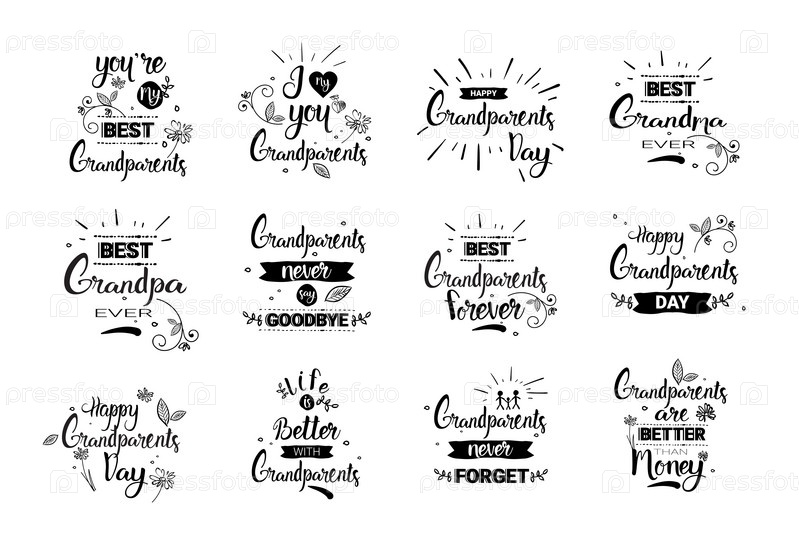 you're
My
BEST
Grandparents
I My
you
Grandparents
HAPPY
Grandparents
Day
BEST
Grandma
EVER
BEST
Grandpa
EVER
Grandparents
never
say
GOODBYE
BEST
Grandparents
forever
Happy
Grandparents
DAY
Happy
Grandparents
Day
Life
is
Better
WITH
Grandparents
Grandparents
never
FORGET
Grandparents
are
BETTER
THAN
Money
pressfoto